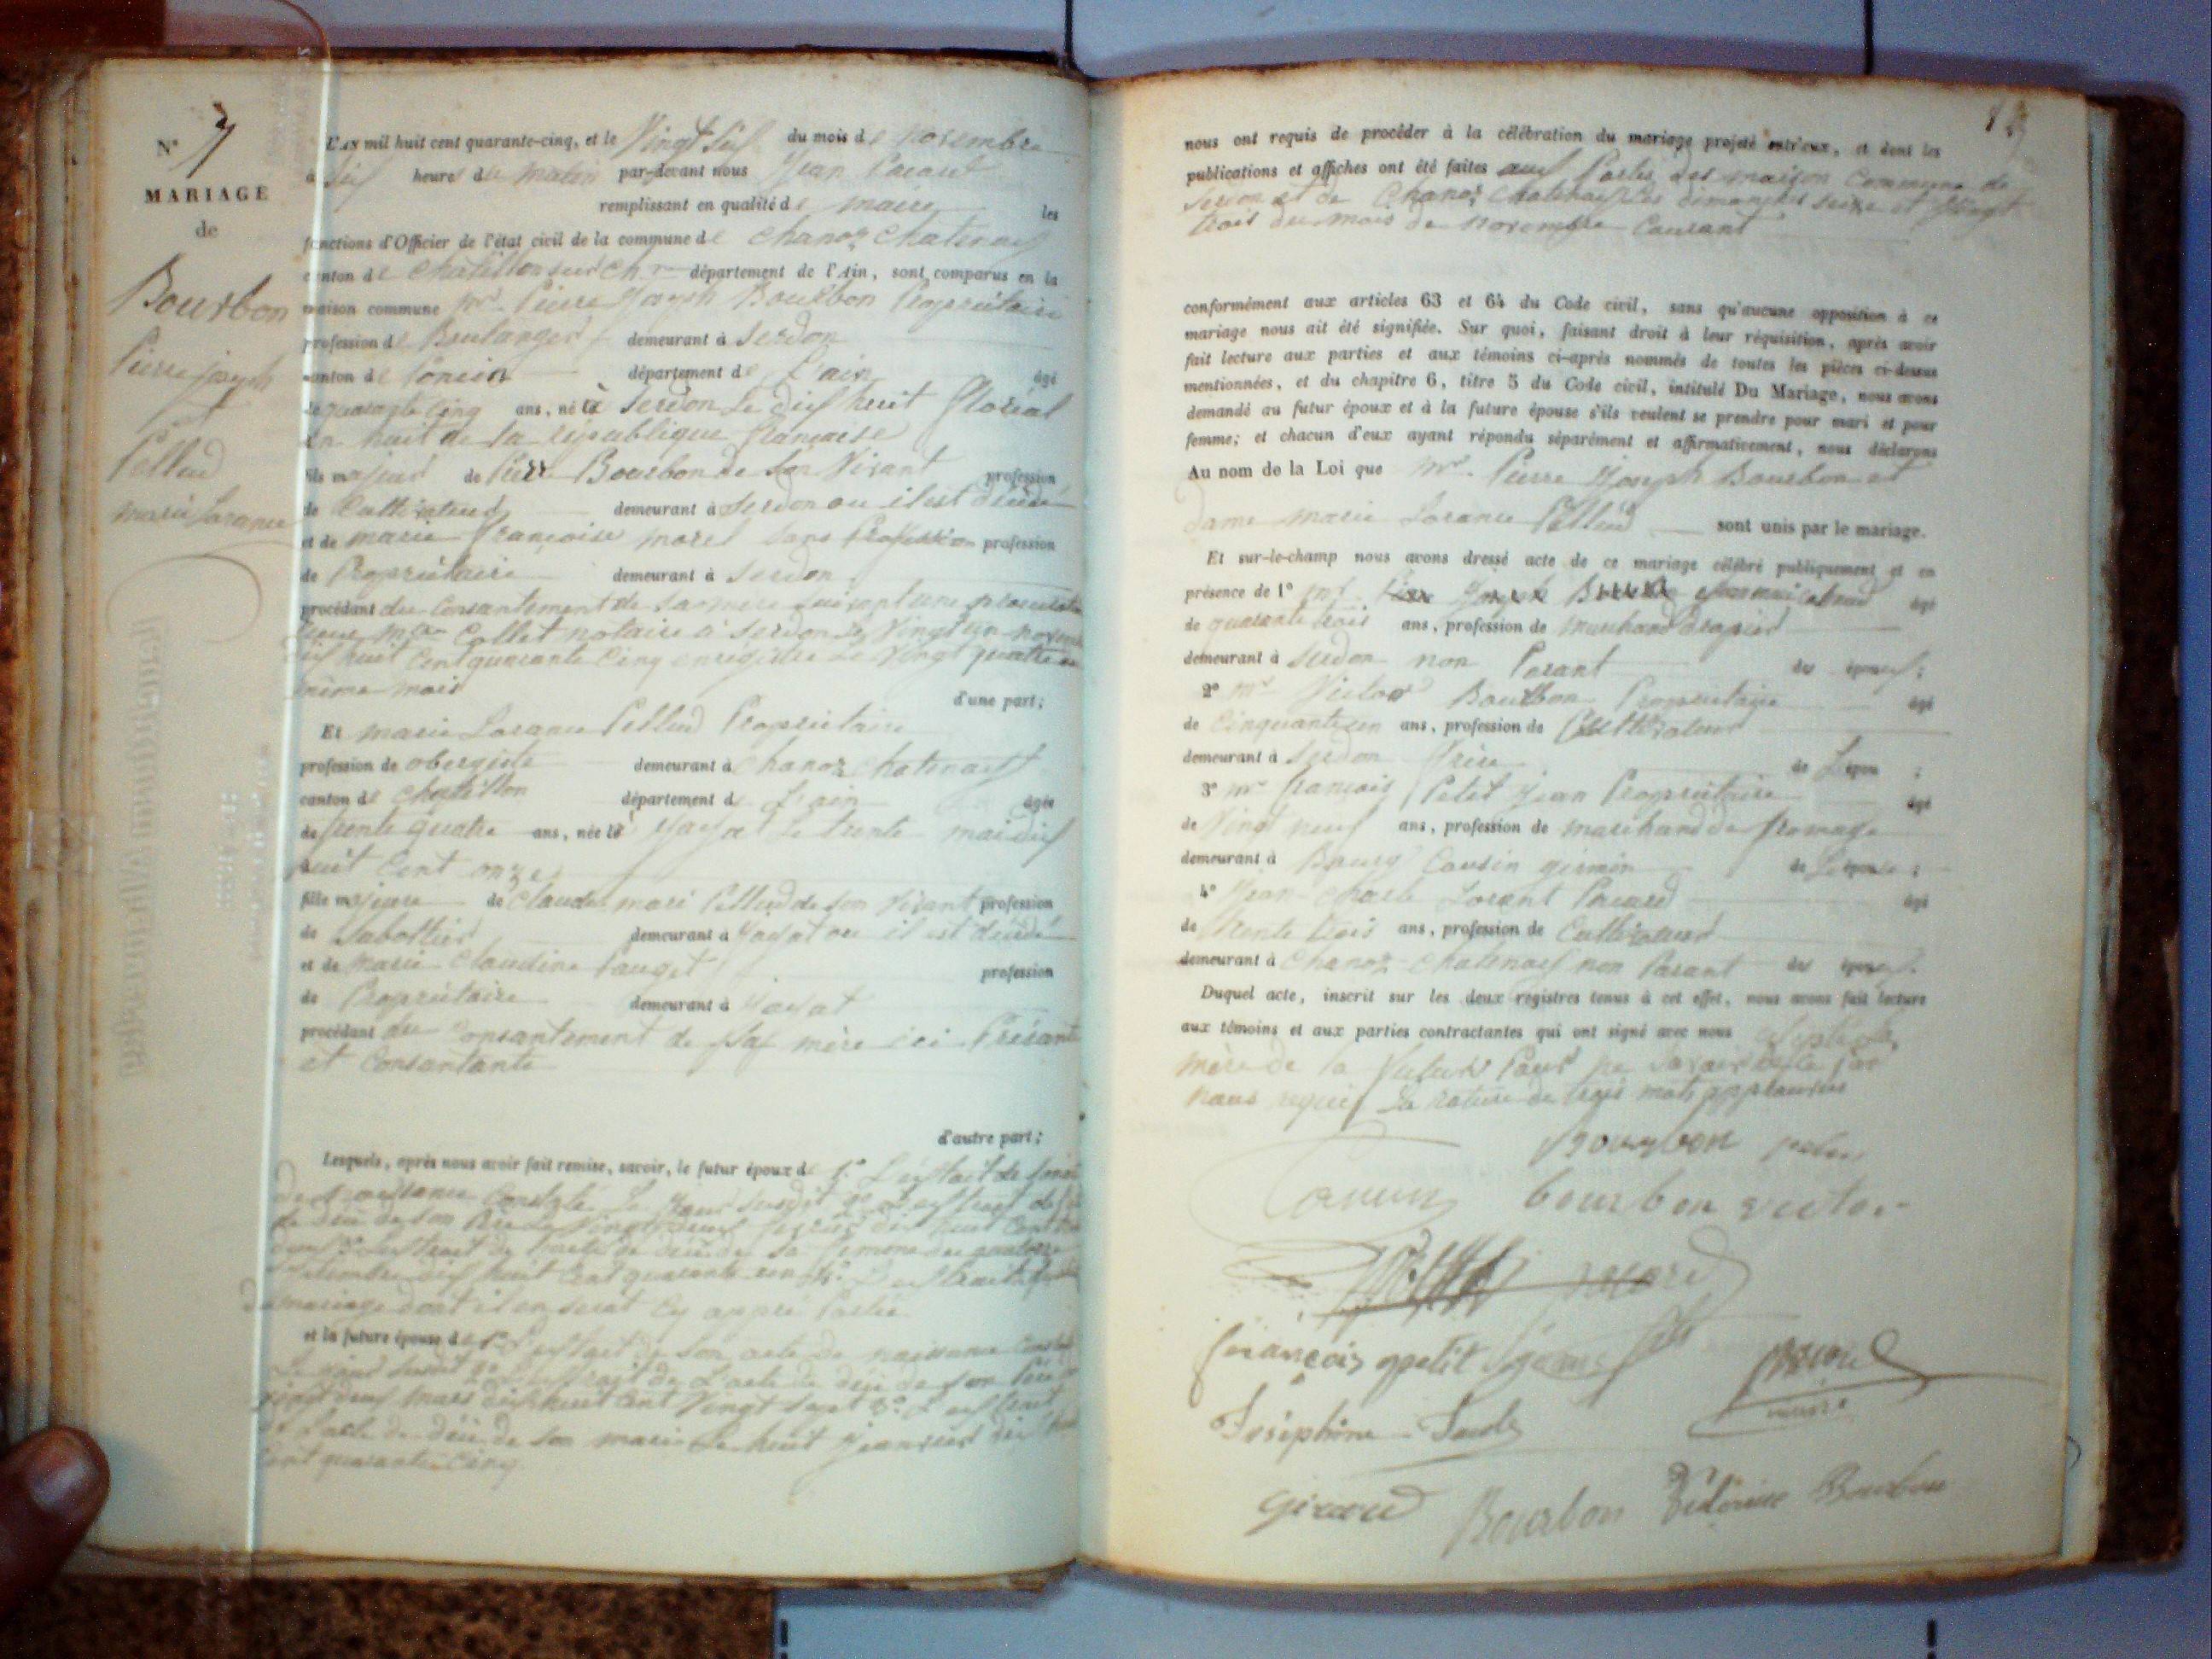 N° 7
MARIAGE
de
Bourbon
Pierre Joseph
et
Pellud
marie Lorance
L'AN mil huit cent quarante-cinq, et le Vingt six du mois de novembre
à Six heures du matin par-devant nous Jean Pacard
remplissant en qualité de maire les
fonctions d'Officier de l'état civil de la commune de Chanoz Chatenay
canton de Chatillon sur Ch.ne département de l'Ain, sont comparus en la
maison commune mr. Pierre Joseph Bourbon Propriétaire
profession de Boulanger demeurant à Serdon
canton de Poncin département de L'ain âgé
de quarante Cinq ans, né à Serdon Le dix huit floréal
an huit de la république française
fils majeur de Pierre Bourbon de son Vivant profession
de Cultivateur demeurant à Serdon ou il est décédé
et de marie françoise morel Sans Profession profession
de Propriétaire demeurant à Serdon
procédant du Consantement de sa mère
Collet notaire à Serdon le Vingt un
dix huit Cent quarante Cinq enregistré Le Vingt quatre
même mois
d'une part;
Et marie Lorance Pellud Propriétaire
profession de obergiste demeurant à Chanoz Chatenay
canton de Chatillon département de L'ain âgée
de trente quatre ans, née à Jayat Le trente mai dix
huit Cent onze
fille majeure de Claude mari Pellud de son Vivant profession
de Sabottier demeurant à Jayat ou il est décédé
et de marie Claudine Pauget profession
de Propriétaire demeurant à Jayat
procédant du Consantement de Sa mère ici Présante
et Consantante
d'autre part;
Lesquels, après nous avoir fait remise, savoir, le futur époux de 1.° L'extrait de
de naissance le jour susdit 2° L'extrait de
de son Père Le Vingt deux
L'extrait de de sa femme du quatorze
dix huit Cent quarante un
de mariage
et la future épouse de 1° L'extrait de Son acte de naissance
Le jour susdit 2° L'extrait de L'acte de décé de son Père
vingt deux mars dix huit Cent Vingt Sept 3° L'extrait
de L'acte de décé de son mari Le huit
Cent quarante Cinq
nous ont requis de procéder à la célébration du mariage projeté entr'eux, et dont les
publications et affiches ont été faites aux Portes des maison Commune de
Serdon et de Chanoz Chatenay Les dimanches seize et Vingt
trois du mois de novembre Courant
conformément aux articles 63 et 64 du Code civil, sans qu'aucune opposition à ce
mariage nous ait été signifiée. Sur quoi, faisant droit à leur réquisition, après avoir
fait lecture aux parties et aux témoins ci-après nommés de toutes les pièces ci-dessus
mentionnées, et du chapitre 6, titre 5 du Code civil, intitulé Du Mariage, nous avons
demandé au futur époux et à la future épouse s'ils veulent se prendre pour mari et pour
femme; et chacun d'eux ayant répondu séparément et affirmativement, nous déclarons
Au nom de la Loi que mr. Pierre Joseph Bourbon et
Dame marie Lorance Pellud sont unis par le mariage.
Et sur-le-champ nous avons dressé acte de ce mariage célébré publiquement et en
présence de 1° âgé
de quarante trois ans, profession de marchand drapier
demeurant à Serdon non Parant des époux;
2° mr Victor Bourbon Propriétaire âgé
de Cinquante un ans, profession de Cultivateur
demeurant à Serdon frère de L'époux;
3° mr françois Petit jean Propriétaire âgé
de Vingt neuf ans, profession de marchand de fromage
demeurant à Bourg Cousin germin de L'épouse;
4° Jean Charle Lorant Pacard âgé
de trente trois ans, profession de Cultivateur
demeurant à Chanoz-Chatenay non Parant des époux.
Duquel acte, inscrit sur les deux registres tenus à cet effet, nous avons fait lecture
aux témoins et aux parties contractantes qui ont signé avec nous
mère de la future Pour ne Savoir
nous requis La rature de trois mots
Bourbon
bourbon victor
pacard
françois ppetit Jean
Joséphine
Girard Bourbon Victorine Bourbon